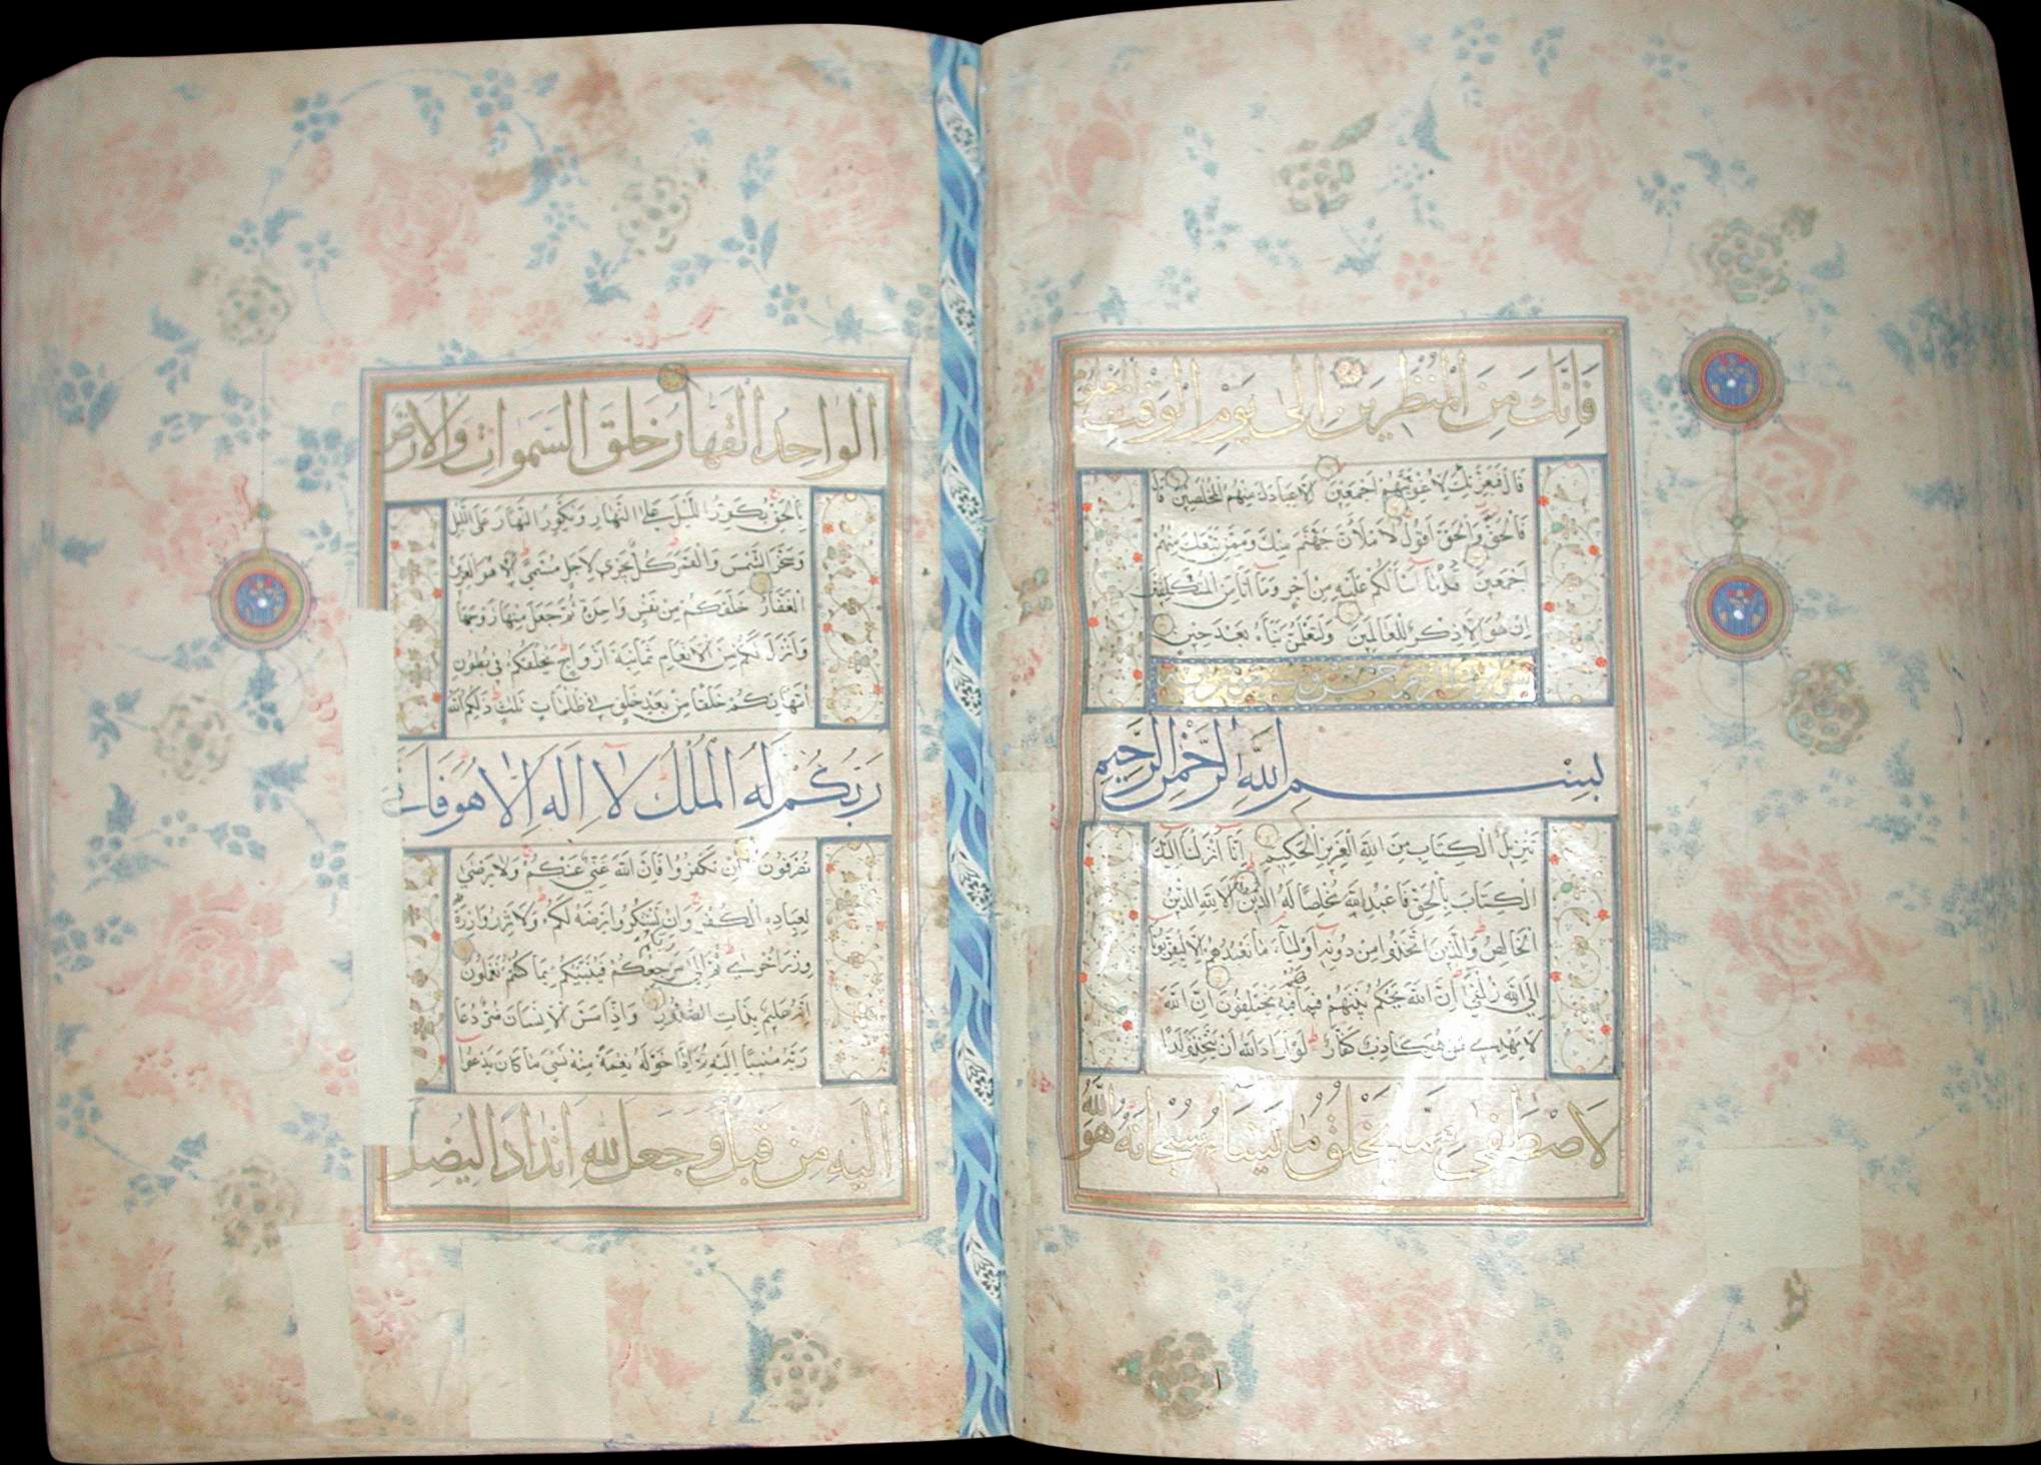 فَإِنَّكَ مِنَ الْمُنْظَرِينَ إِلَى يَوْمِ الْوَقْتِ الْمَعْلُومِ
قَالَ فَبِعِزَّتِكَ لَأُغْوِيَنَّهُمْ أَجْمَعِينَ إِلَّا عِبَادَكَ مِنْهُمُ الْمُخْلَصِينَ قَالَ
فَالْحَقُّ وَالْحَقَّ أَقُولُ لَأَمْلَأَنَّ جَهَنَّمَ مِنْكَ وَمِمَّنْ تَبِعَكَ مِنْهُمْ
أَجْمَعِينَ قُلْ مَا أَسْأَلُكُمْ عَلَيْهِ مِنْ أَجْرٍ وَمَا أَنَا مِنَ الْمُتَكَلِّفِينَ
إِنْ هُوَ إِلَّا ذِكْرٌ لِلْعَالَمِينَ وَلَتَعْلَمُنَّ نَبَأَهُ بَعْدَ حِينٍ
بِسْمِ اللَّهِ الرَّحْمَنِ الرَّحِيمِ
تَنْزِيلُ الْكِتَابِ مِنَ اللَّهِ الْعَزِيزِ الْحَكِيمِ إِنَّا أَنْزَلْنَا إِلَيْكَ
الْكِتَابَ بِالْحَقِّ فَاعْبُدِ اللَّهَ مُخْلِصًا لَهُ الدِّينَ أَلَا لِلَّهِ الدِّينُ
الْخَالِصُ وَالَّذِينَ اتَّخَذُوا مِنْ دُونِهِ أَوْلِيَاءَ مَا نَعْبُدُهُمْ إِلَّا لِيُقَرِّبُونَا
إِلَى اللَّهِ زُلْفَى إِنَّ اللَّهَ يَحْكُمُ بَيْنَهُمْ فِيمَا هُمْ فِيهِ يَخْتَلِفُونَ إِنَّ اللَّهَ
لَا يَهْدِي مَنْ هُوَ كَاذِبٌ كَفَّارٌ لَوْ أَرَادَ اللَّهُ أَنْ يَتَّخِذَ وَلَدًا
لَاصْطَفَى مِمَّا يَخْلُقُ مَا يَشَاءُ سُبْحَانَهُ هُوَ اللَّهُ
الْوَاحِدُ الْقَهَّارُ خَلَقَ السَّمَوَاتِ وَالْأَرْضَ
بِالْحَقِّ يُكَوِّرُ اللَّيْلَ عَلَى النَّهَارِ وَيُكَوِّرُ النَّهَارَ عَلَى اللَّيْلِ
وَسَخَّرَ الشَّمْسَ وَالْقَمَرَ كُلٌّ يَجْرِي لِأَجَلٍ مُسَمًّى أَلَا هُوَ الْعَزِيزُ
الْغَفَّارُ خَلَقَكُمْ مِنْ نَفْسٍ وَاحِدَةٍ ثُمَّ جَعَلَ مِنْهَا زَوْجَهَا
وَأَنْزَلَ لَكُمْ مِنَ الْأَنْعَامِ ثَمَانِيَةَ أَزْوَاجٍ يَخْلُقُكُمْ فِي بُطُونِ
أُمَّهَاتِكُمْ خَلْقًا مِنْ بَعْدِ خَلْقٍ فِي ظُلُمَاتٍ ثَلَاثٍ ذَلِكُمُ اللَّهُ
رَبُّكُمْ لَهُ الْمُلْكُ لَا إِلَهَ إِلَّا هُوَ فَأَنَّى
تُصْرَفُونَ إِنْ تَكْفُرُوا فَإِنَّ اللَّهَ غَنِيٌّ عَنْكُمْ وَلَا يَرْضَى
لِعِبَادِهِ الْكُفْرَ وَإِنْ تَشْكُرُوا يَرْضَهُ لَكُمْ وَلَا تَزِرُ وَازِرَةٌ
وِزْرَ أُخْرَى ثُمَّ إِلَى رَبِّكُمْ مَرْجِعُكُمْ فَيُنَبِّئُكُمْ بِمَا كُنْتُمْ تَعْمَلُونَ
إِنَّهُ عَلِيمٌ بِذَاتِ الصُّدُورِ وَإِذَا مَسَّ الْإِنْسَانَ ضُرٌّ دَعَا
رَبَّهُ مُنِيبًا إِلَيْهِ ثُمَّ إِذَا خَوَّلَهُ نِعْمَةً مِنْهُ نَسِيَ مَا كَانَ يَدْعُوا
إِلَيْهِ مِنْ قَبْلُ وَجَعَلَ لِلَّهِ أَنْدَادًا لِيُضِلَّ